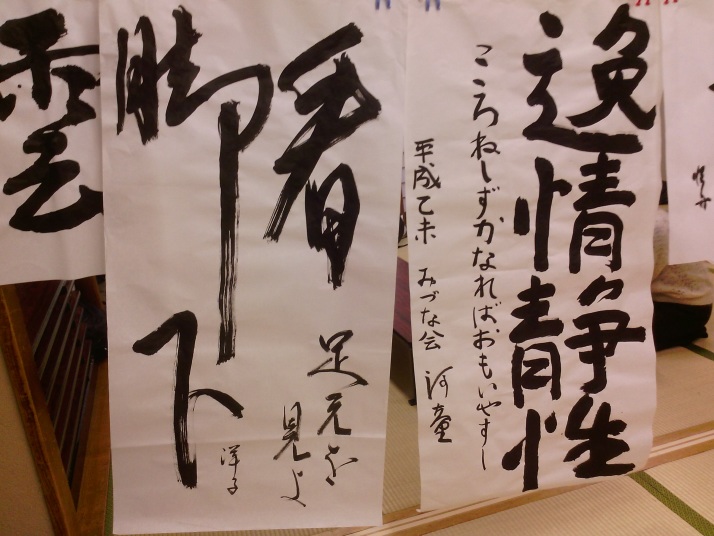 逸情静性
こころねしずかなればおもいやすし
平成乙未 みづな会 河童
看
脚下
足元を
見よ
洋子